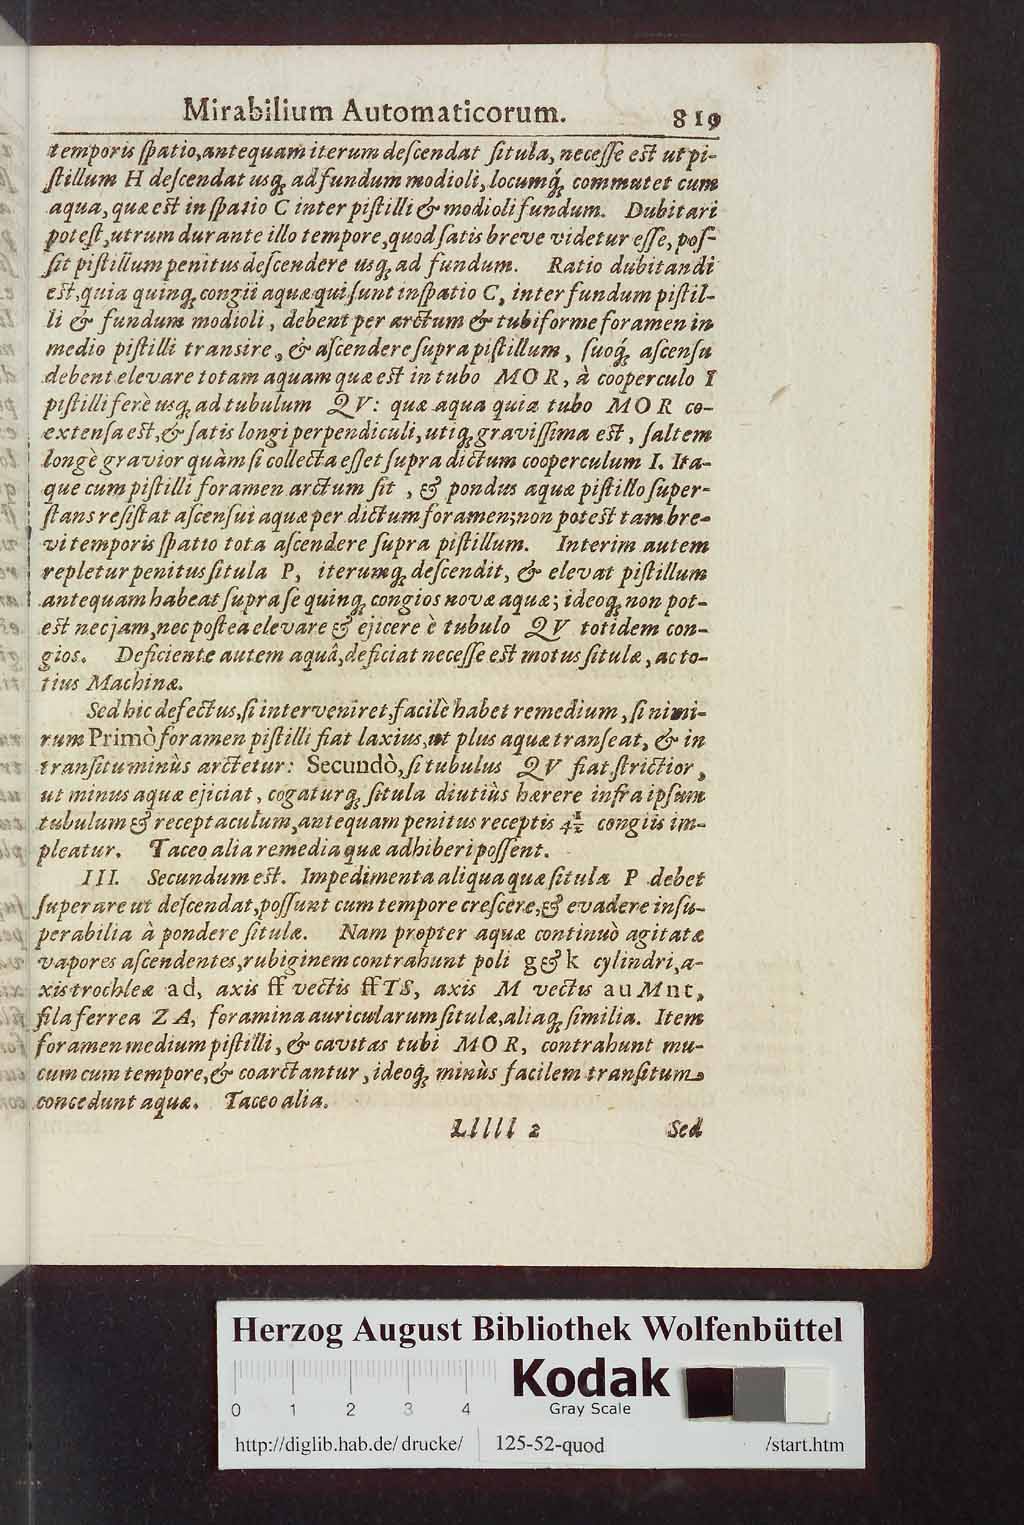 Mirabilium Automaticorum. 819
temporis ſpatio, antequam iterum deſcendat ſitula, neceſſe est ut pi-
ſtillum H deſcendat usq́; ad fundum modioli, locumq́; commutet cum
aqua, quæ est in ſpatio C inter piſtilli & modioli fundum. Dubitari
poteſt, utrum durante illo tempore, quod ſatis breve videtur eſſe, poſ-
ſit piſtillum penitus deſcendere usq́; ad fundum. Ratio dubitandi
est, quia quinq́; congii aquæ qui ſunt in ſpatio C, inter fundum piſtil-
li & fundum modioli, debent per arctum & tubiforme foramen in
medio piſtilli transire, & aſcendere ſupra piſtillum, ſuoq́; aſcenſu
debent elevare totam aquam quæ est in tubo MOR, à cooperculo I
piſtilli ferè usq́; ad tubulum QV: quæ aqua quia tubo MOR co-
extenſa est, & ſatis longi perpendiculi, utiq́; graviſſima est, ſaltem
longè gravior quàm ſi collecta eſſet ſupra dictum cooperculum I. Ita-
que cum piſtilli foramen arctum ſit, & pondus aquæ piſtillo ſuper-
ſtans reſiſtat aſcenſui aquæ per dictum foramen; non potest tam bre-
vi temporis ſpatio tota aſcendere ſupra piſtillum. Interim autem
repletur penitus ſitula P, iterumq́; deſcendit, & elevat piſtillum
antequam habeat ſupra ſe quinq́; congios novæ aquæ; ideoq́; non pot-
est nec jam, nec poſtea elevare & ejicere è tubulo QV totidem con-
gios. Deficiente autem aquâ, deficiat neceſſe est motus ſitulæ, ac to-
tius Machinæ.
Sed hic defectus, ſi interveniret, facilè habet remedium, ſi nimi-
rum Primò foramen piſtilli fiat laxius, ut plus aquæ tranſeat, & in
tranſitu minùs arctetur: Secundò, ſi tubulus QV fiat ſtrictior,
ut minus aquæ ejiciat, cogaturq́; ſitula diutiùs hærere infra ipſum
tubulum & receptaculum, antequam penitus receptis 4½ congiis im-
pleatur. Taceo alia remedia quæ adhiberi poſſent.
III. Secundum est. Impedimenta aliqua quæ ſitula P debet
ſuperare ut deſcendat, poſſunt cum tempore creſcere, & evadere inſu-
perabilia à pondere ſitulæ. Nam propter aquæ continuò agitatæ
vapores aſcendentes, rubiginem contrahunt poli g & k cylindri, a-
xis trochleæ ad, axis ff vectis ff TS, axis M vectis au Mnt,
fila ferrea ZA, foramina auricularum ſitulæ, aliaq́; ſimilia. Item
foramen medium piſtilli, & cavitas tubi MOR, contrahunt mu-
cum cum tempore, & coarctantur, ideoq́; minùs facilem tranſitum
concedunt aquæ. Taceo alia.
Lllll 2 Sed
Herzog August Bibliothek Wolfenbüttel
Kodak
0 1 2 3 4 Gray Scale
http://diglib.hab.de/drucke/ 125-52-quod /start.htm